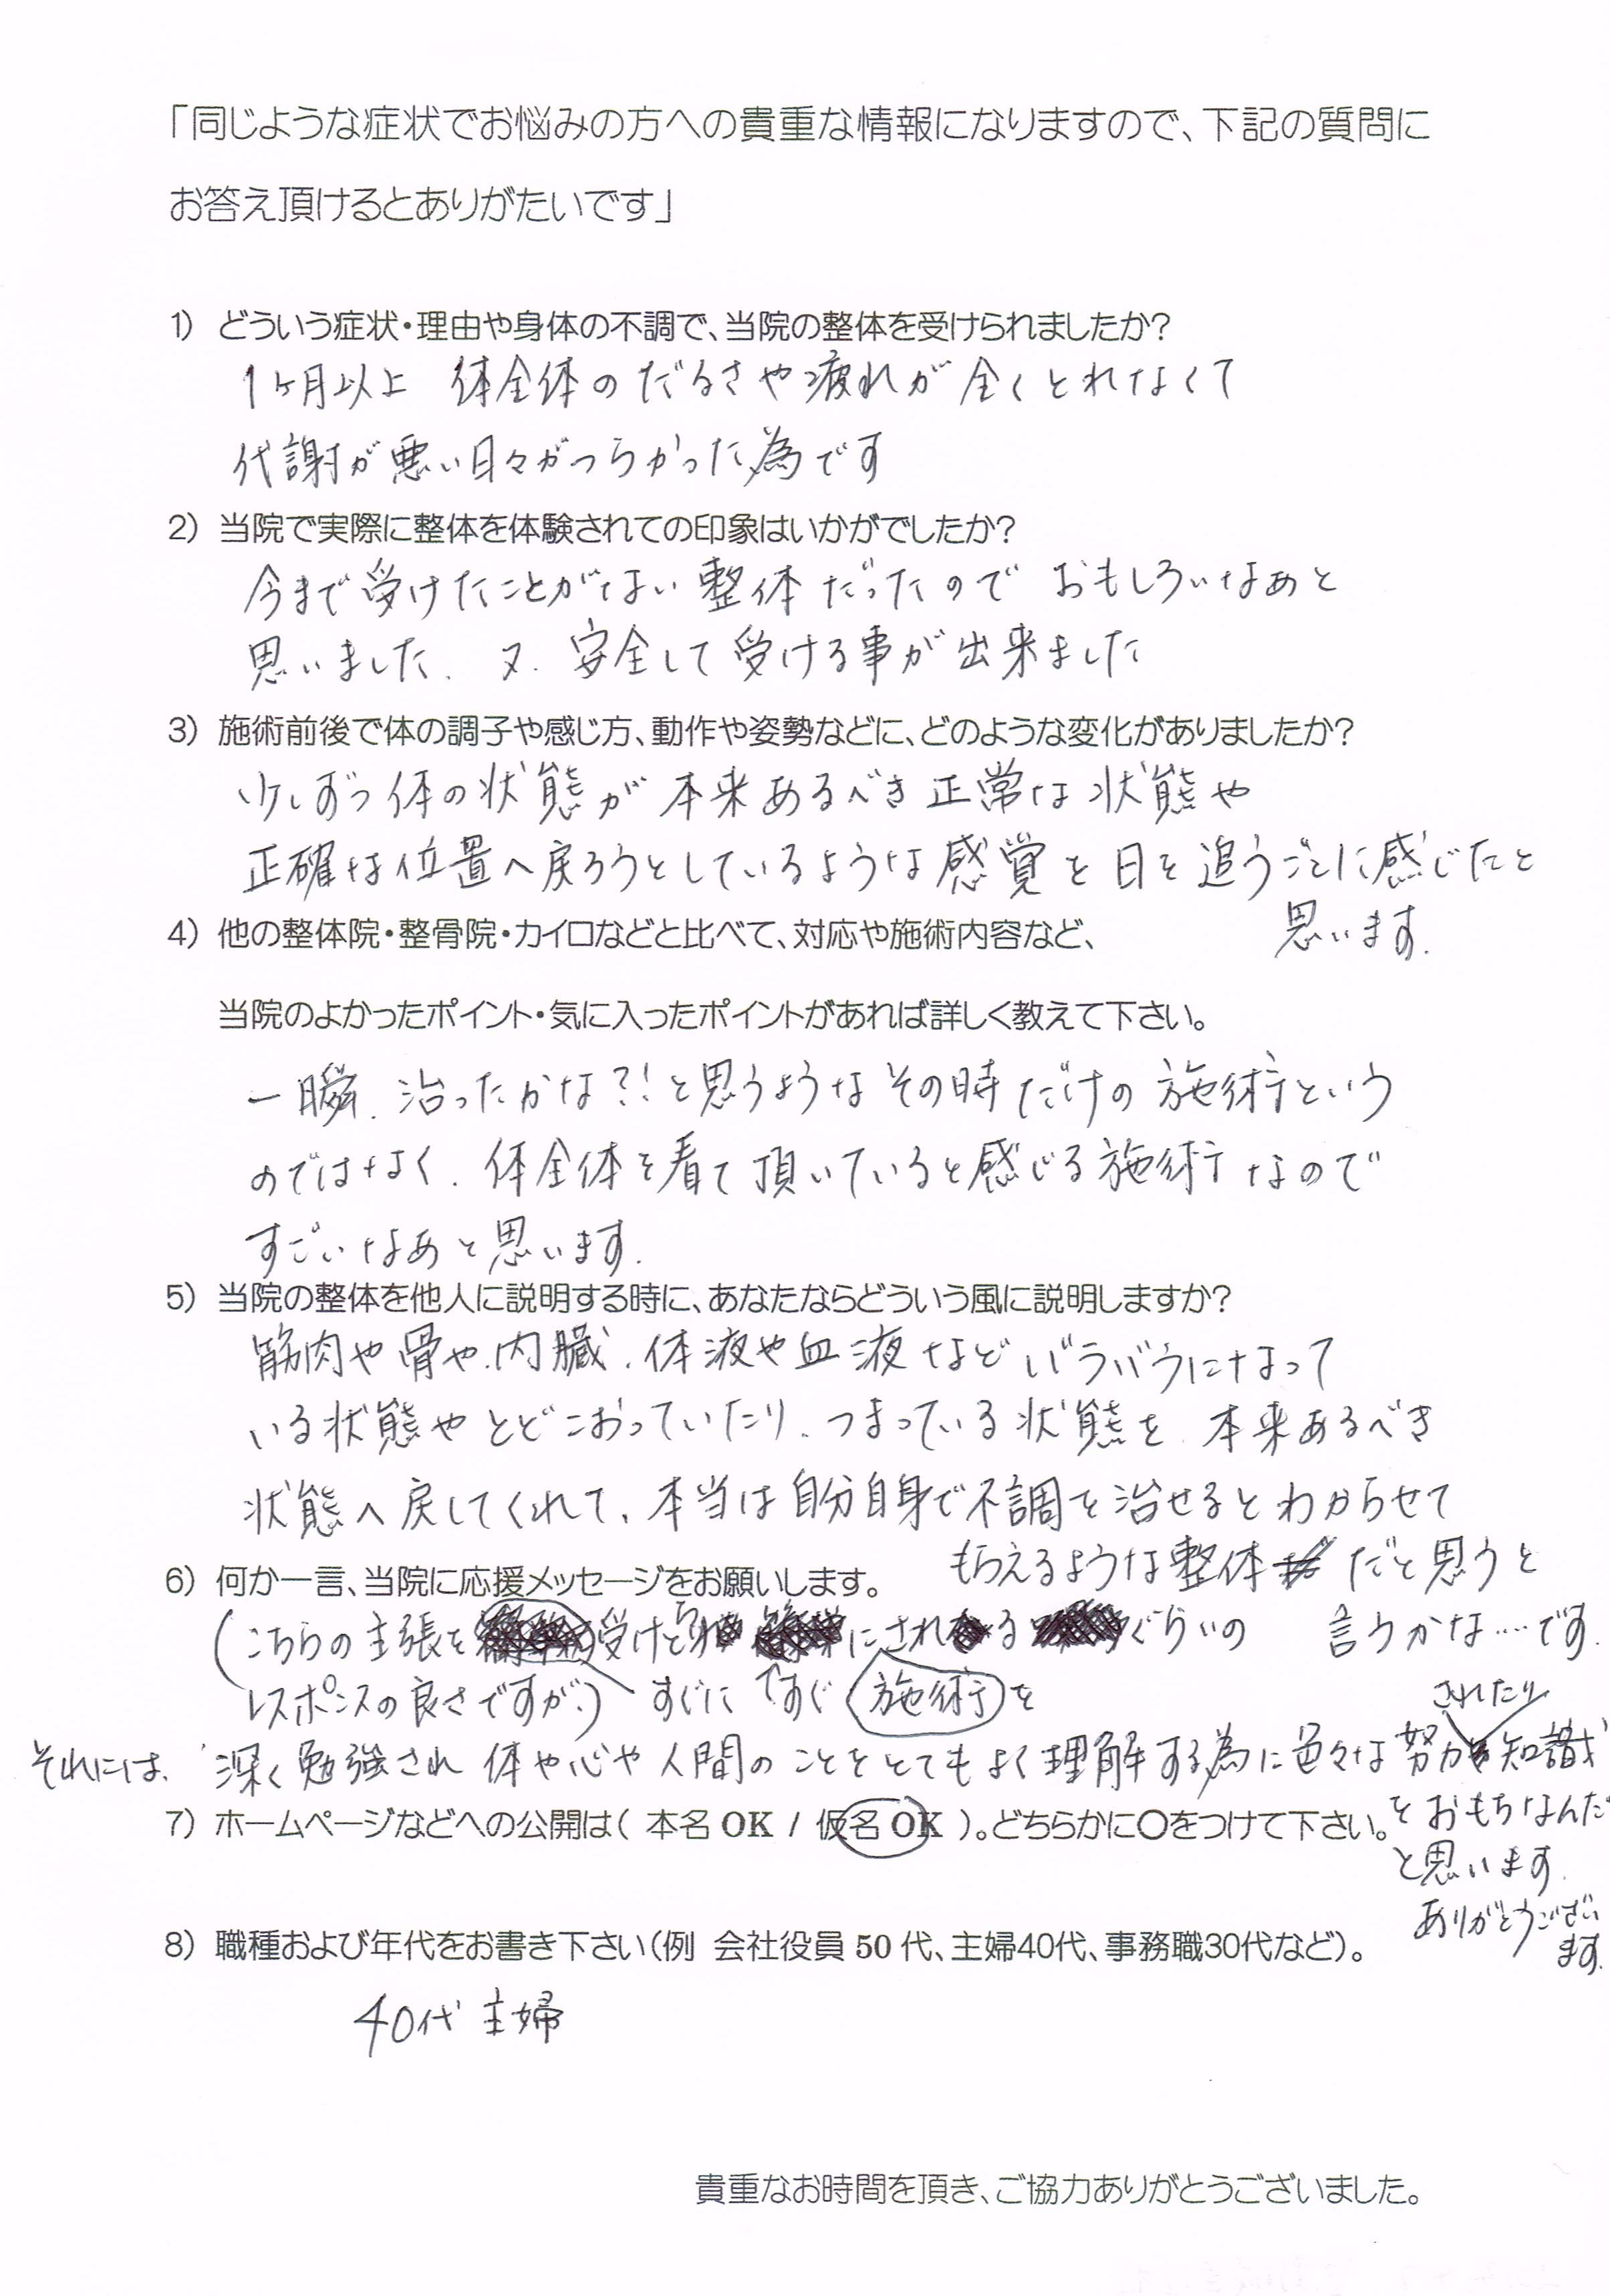 「同じような症状でお悩みの方への貴重な情報になりますので、下記の質問に
お答え頂けるとありがたいです」
1) どういう症状・理由や身体の不調で、当院の整体を受けられましたか?
1ヶ月以上 体全体のだるさや疲れが全くとれなくて
代謝が悪い日々がつらかった為です
2) 当院で実際に整体を体験されての印象はいかがでしたか?
今まで受けたことがない整体だったので おもしろいなぁと
思いました. 又. 安全して受ける事が出来ました
3) 施術前後で体の調子や感じ方、動作や姿勢などに、どのような変化がありましたか?
少しずつ体の状態が本来あるべき正常な状態や
正確な位置へ戻ろうとしているような感覚を日を追うごとに感じたと
思います.
4) 他の整体院・整骨院・カイロなどと比べて、対応や施術内容など、
当院のよかったポイント・気に入ったポイントがあれば詳しく教えて下さい。
一瞬. 治ったかな?!と思うようなその時だけの施術という
のではなく. 体全体を看て頂いていると感じる施術なので
すごいなあと思います.
5) 当院の整体を他人に説明する時に、あなたならどういう風に説明しますか?
筋肉や骨や.内臓.体液や血液などバラバラになって
いる状態やとどこおっていたり.つまっている状態を.本来あるべき
状態へ戻してくれて、本当は自分自身で不調を治せるとわからせて
もらえるような整体だと思うと
言うかな....です.
6) 何か一言、当院に応援メッセージをお願いします。
(こちらの主張を 受けとら にされ る ぐらいの
レスポンスの良さですが.) すぐに すぐ 施術を
それには. 深く勉強され 体や心や人間のことをとてもよく理解する為に色々な努力 知識
されたり
をおもちなんだ
と思います.
ありがとうござい
ます.
7) ホームページなどへの公開は( 本名 OK / 仮名 OK )。どちらかに〇をつけて下さい。
8) 職種および年代をお書き下さい(例 会社役員 50 代、主婦40代、事務職30代など)。
40代 主婦
貴重なお時間を頂き、ご協力ありがとうございました。